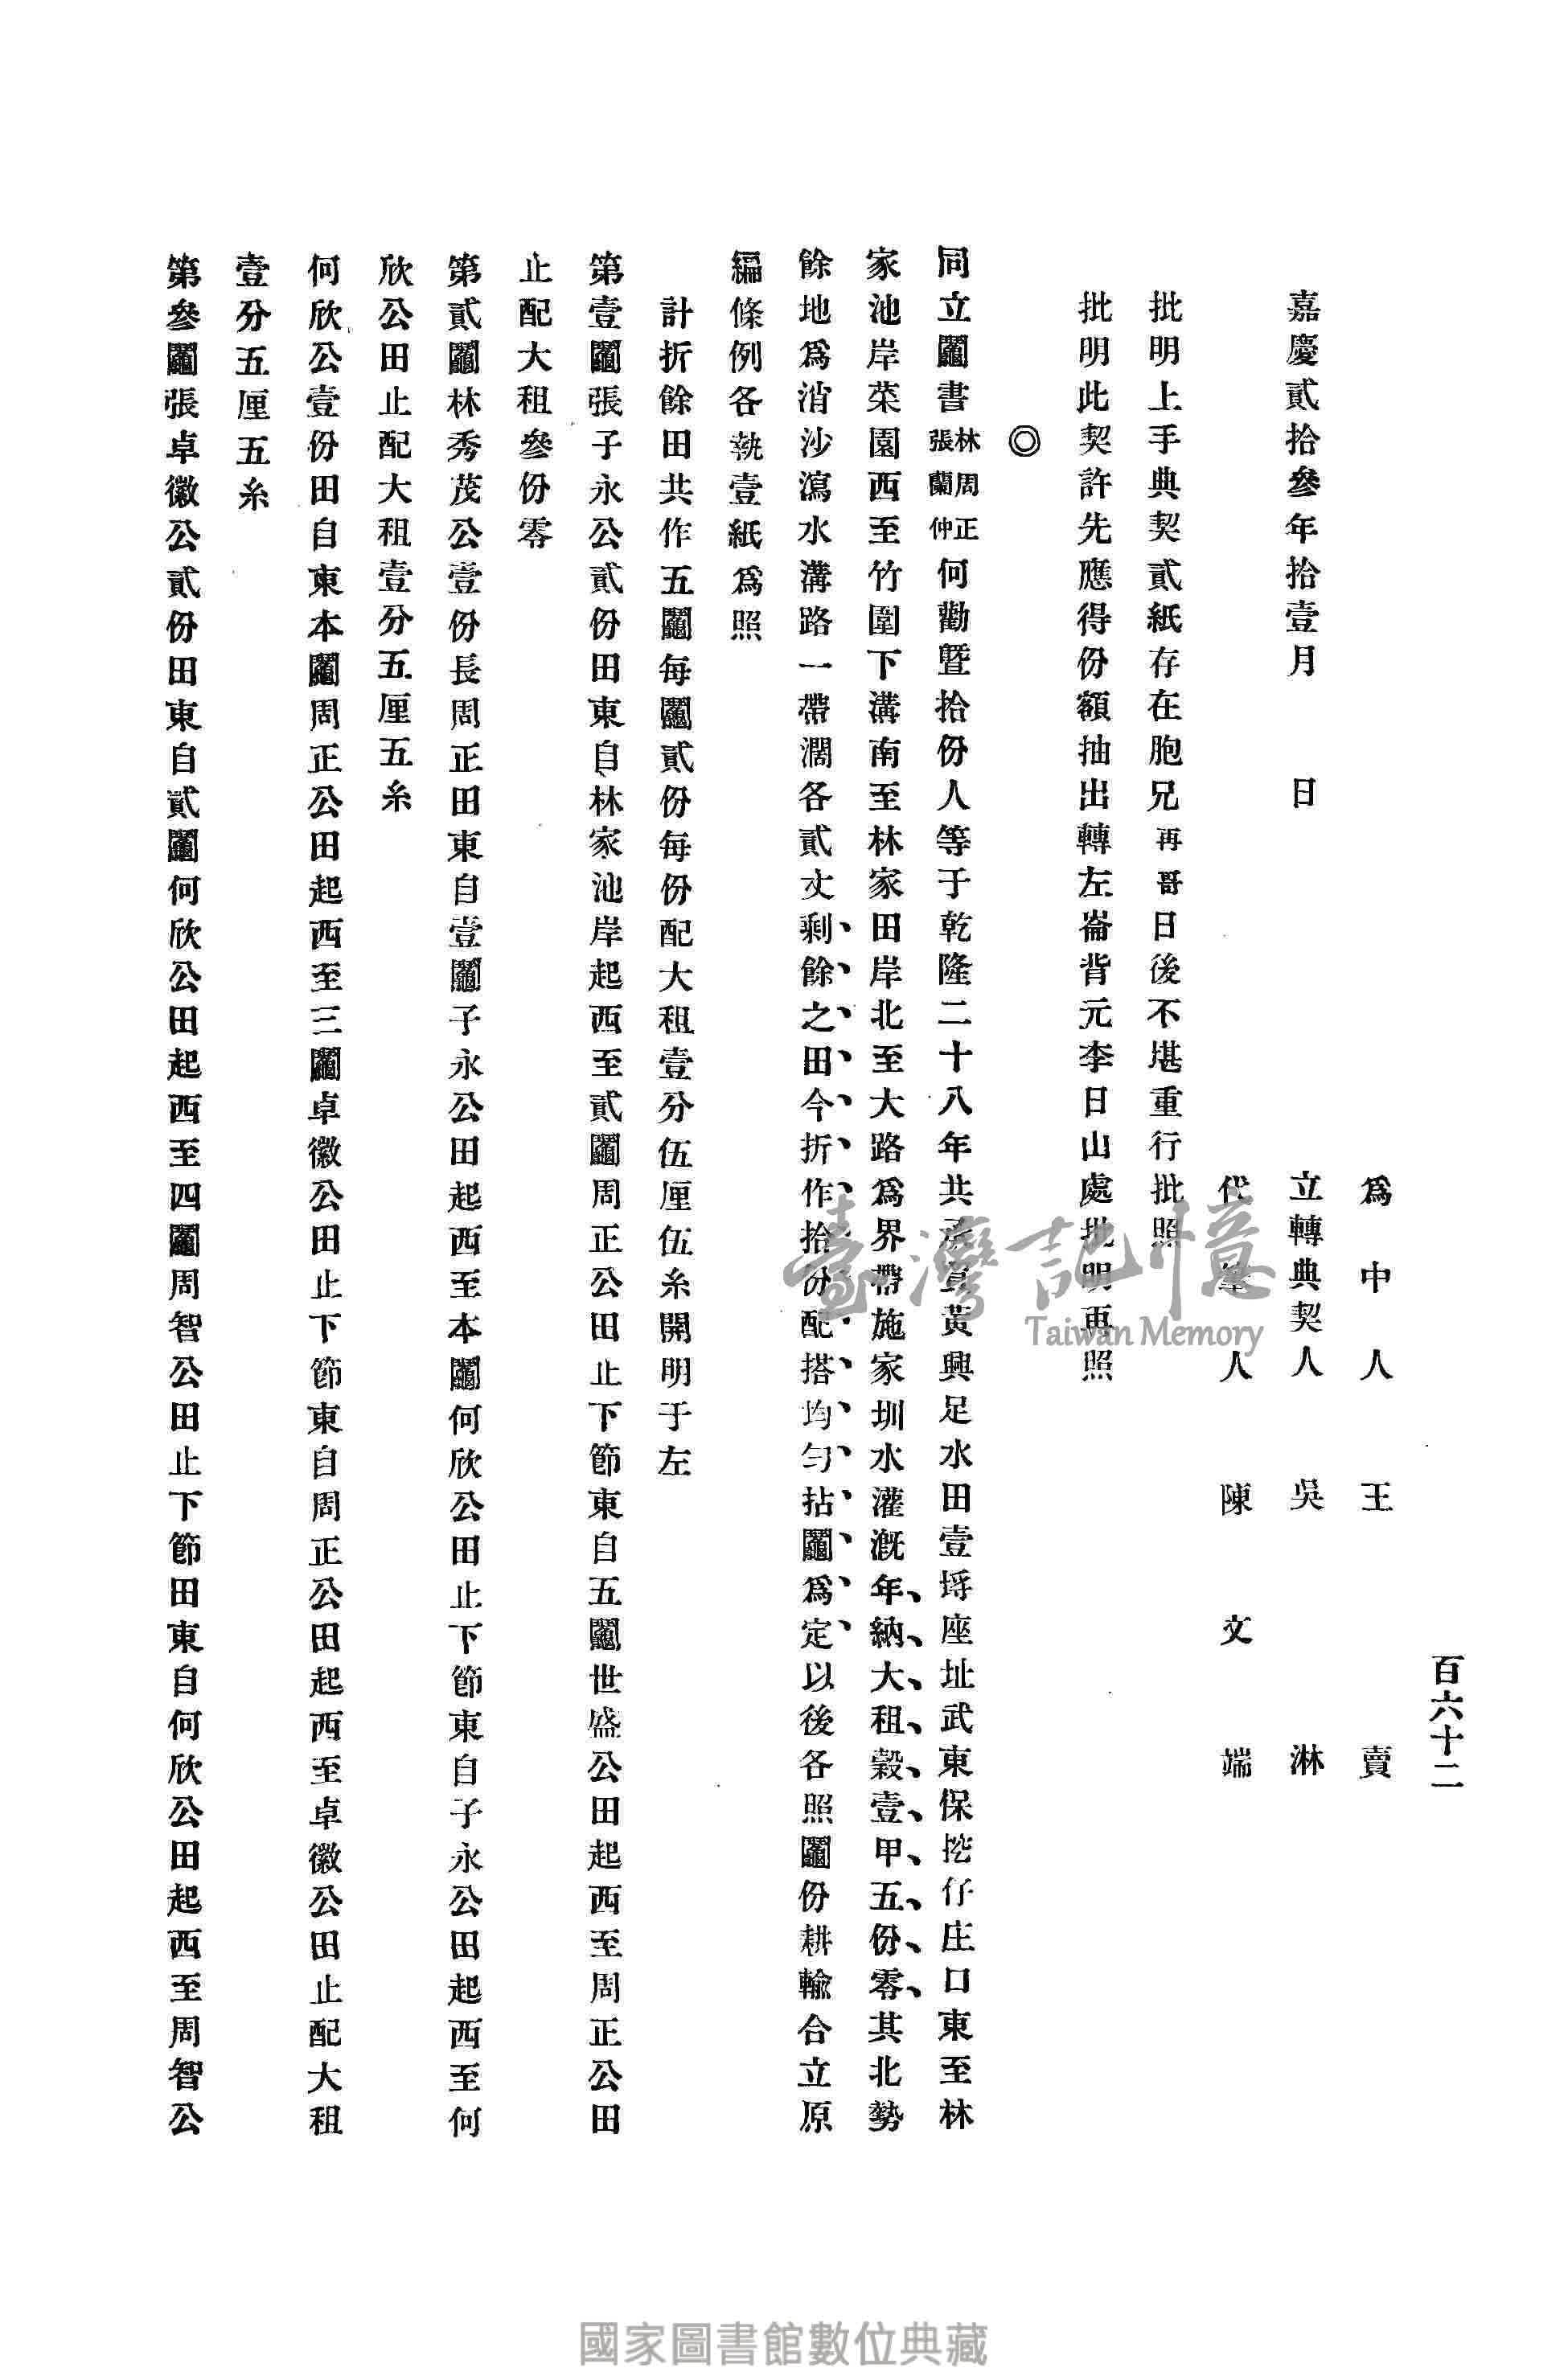 百六十二
爲中人　王　賣
立轉典契人　吳　淋
嘉慶貳拾參年拾壹月　日
代筆人　陳文端
批明上手典契貳紙存在胞兄再哥日後不堪重行批照
批明此契許先應得份額抽出轉左崙背元李日山處批明再照
◎
同立鬮書林周正張蘭仲何勸暨拾份人等于乾隆二十八年共承買黃興足水田壹埓座址武東保挖仔庄口東至林
家池岸菜園西至竹圍下溝南至林家田岸北至大路爲界帶施家圳水灌漑年納大租穀壹甲五份零其北勢
餘地爲消沙瀉水溝路一帶濶各貳丈剩餘之田今折作拾份配搭均勻拈鬮爲定以後各照鬮份耕輸合立原
編條例各執壹紙爲照
計折餘田共作五鬮每鬮貳份每份配大租壹分伍厘伍糸開明于左
第壹鬮張子永公貳份田東自林家池岸起西至貳鬮周正公田止下節東自五鬮世盛公田起西至周正公田
止配大租參份零
第貳鬮林秀茂公壹份長周正田東自壹鬮子永公田起西至本鬮何欣公田止下節東自子永公田起西至何
欣公田止配大租壹分五厘五糸
何欣公壹份田自東本鬮周正公田起西至三鬮卓徽公田止下節東自周正公田起西至卓徽公田止配大租
壹分五厘五糸
第參鬮張卓徽公貳份田東自貳鬮何欣公田起西至四鬮周智公田止下節田東自何欣公田起西至周智公
臺灣記憶
Taiwan Memory
國家圖書館數位典藏